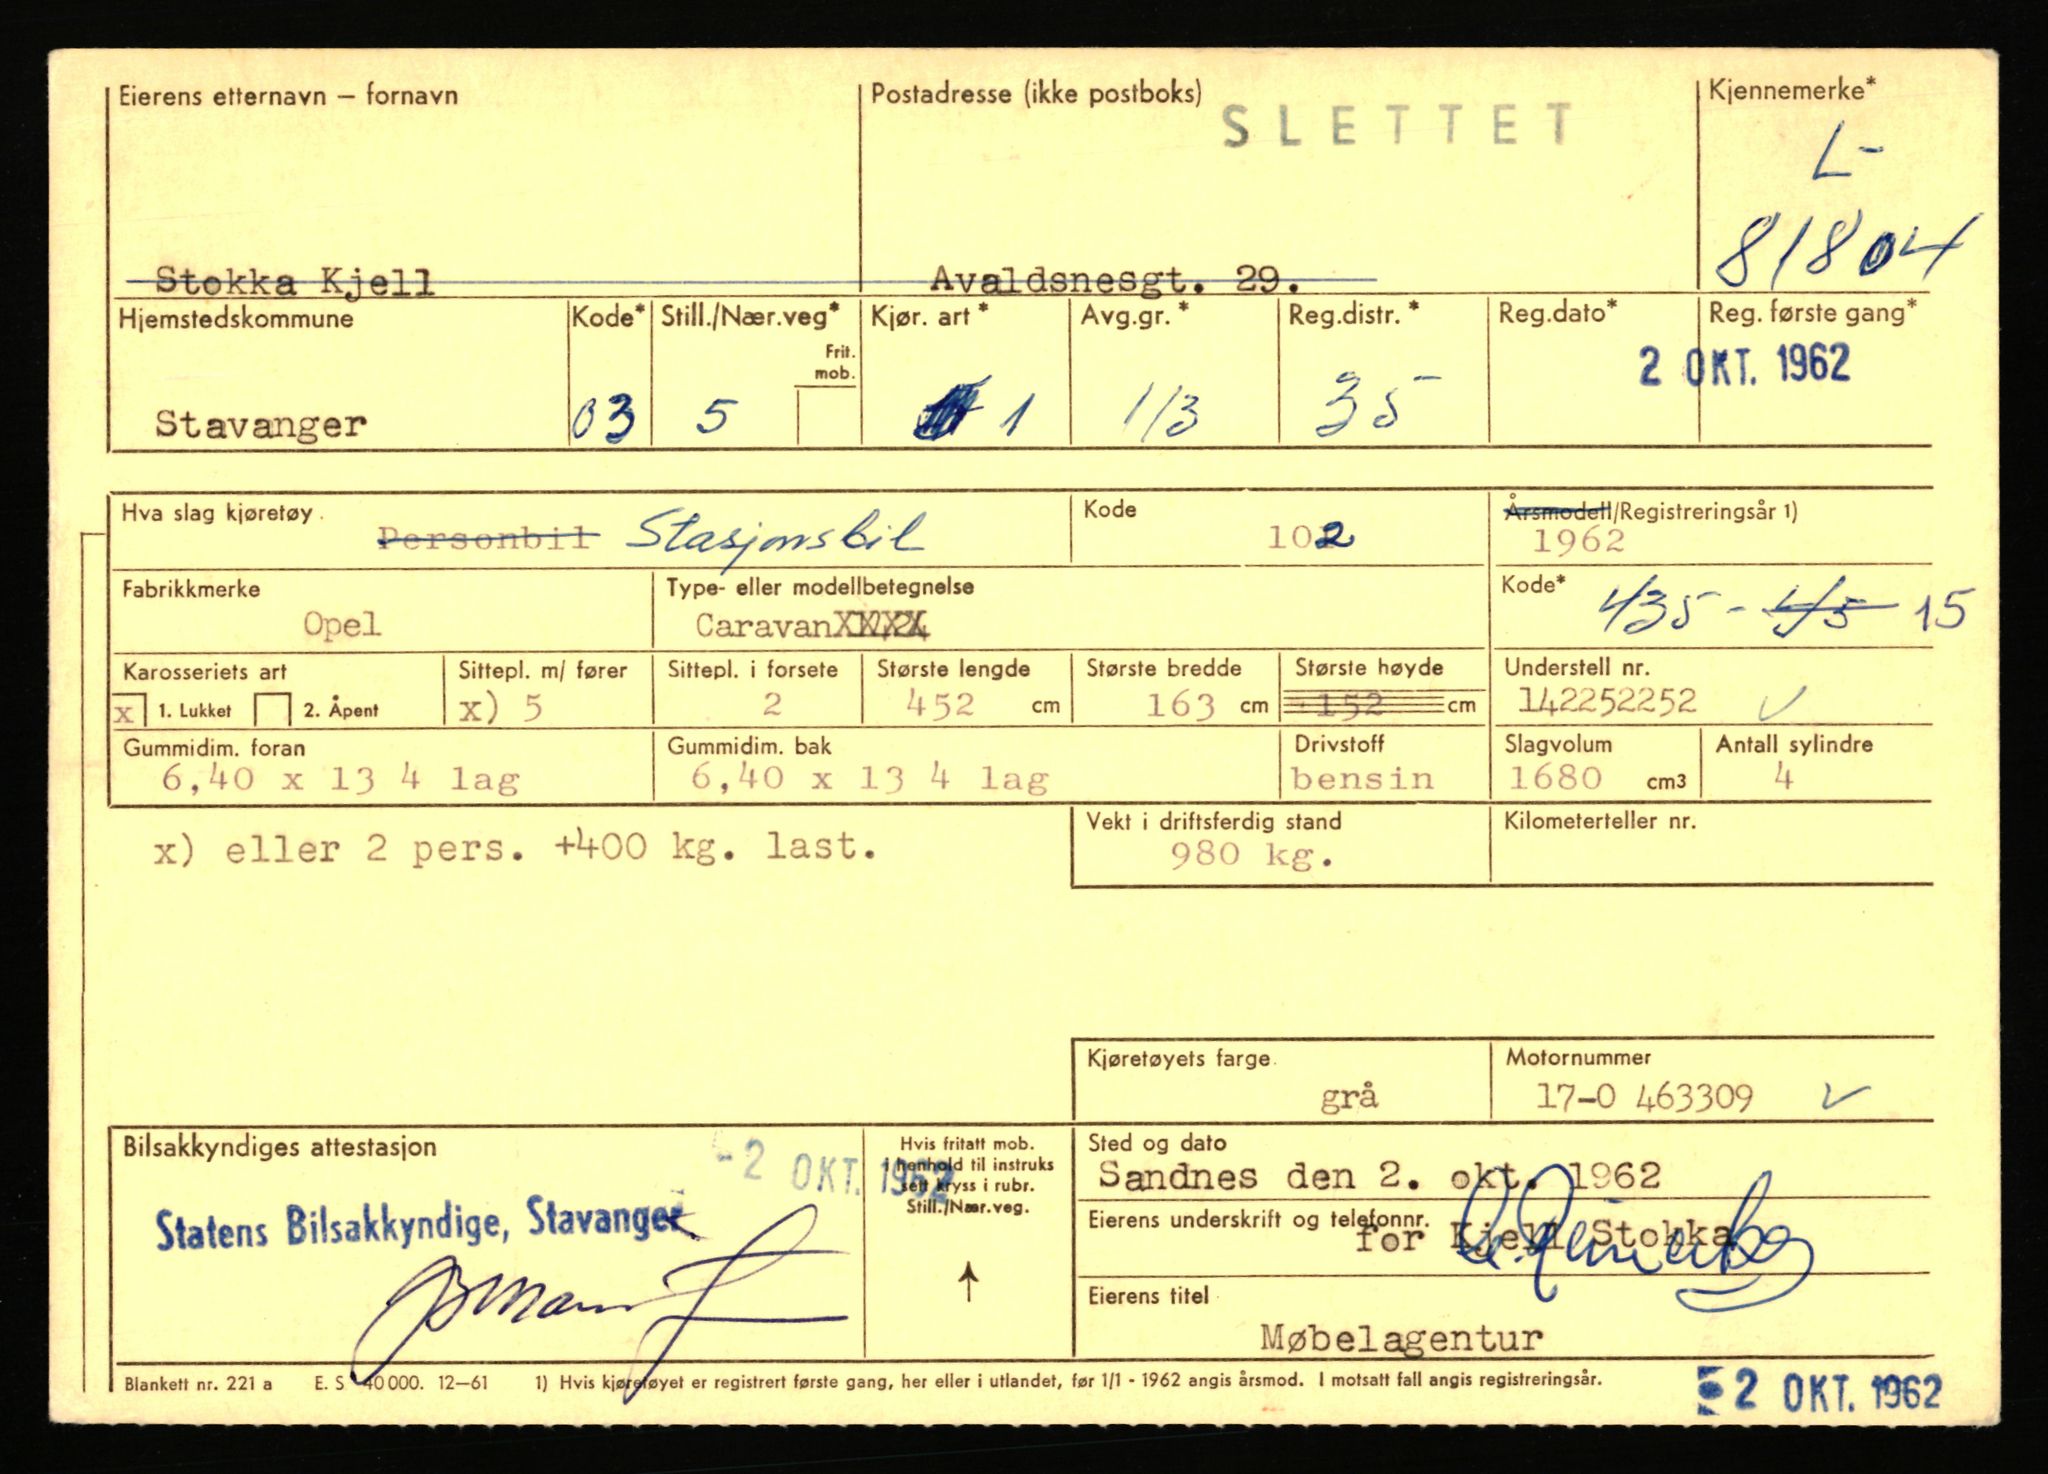 Eierens etternavn – fornavn
Postadresse (ikke postboks)
Kjennemerke*
SLETTET
L-
81804
Stokka Kjell
Avaldsnesgt. 29.
Hjemstedskommune
Kode*
Still./Nær.veg*
Kjør. art *
Avg.gr. *
Reg.distr. *
Reg.dato*
Reg. første gang*
Frit. mob.
2 OKT. 1962
Stavanger
03
5
1
1/3
35
Hva slag kjøretøy.
Personbil Stasjonsbil
Kode
102
Årsmodell/Registreringsår 1)
1962
Fabrikkmerke
Opel
Type- eller modellbetegnelse
CaravanXXXX
Kode*
435 - 45 15
Karosseriets art
x 1. Lukket 2. Åpent
Sittepl. m/ fører
x) 5
Sittepl. i forsete
2
Største lengde
452 cm
Største bredde
163 cm
Største høyde
152 cm
Understell nr.
142252252
Gummidim. foran
6,40 x 13 4 lag
Gummidim. bak
6,40 x 13 4 lag
Drivstoff
bensin
Slagvolum
1680 cm3
Antall sylindre
4
x) eller 2 pers. +400 kg. last.
Vekt i driftsferdig stand
980 kg.
Kilometerteller nr.
Kjøretøyets farge.
grå
Motornummer
17-0 463309
Bilsakkyndiges attestasjon
-2 OKT. 1962
Statens Bilsakkyndige, Stavanger
Hvis fritatt mob.
i henhold til instruks
sett kryss i rubr.
Still./Nær.veg.
Sted og dato
Sandnes den 2. okt. 1962
Eierens underskrift og telefonnr.
for Kjell Stokka
Eierens titel
Møbelagentur
Blankett nr. 221 a E. S 40 000. 12–61 1) Hvis kjøretøyet er registrert første gang, her eller i utlandet, før 1/1 - 1962 angis årsmod. I motsatt fall angis registreringsår.
2 OKT. 1962